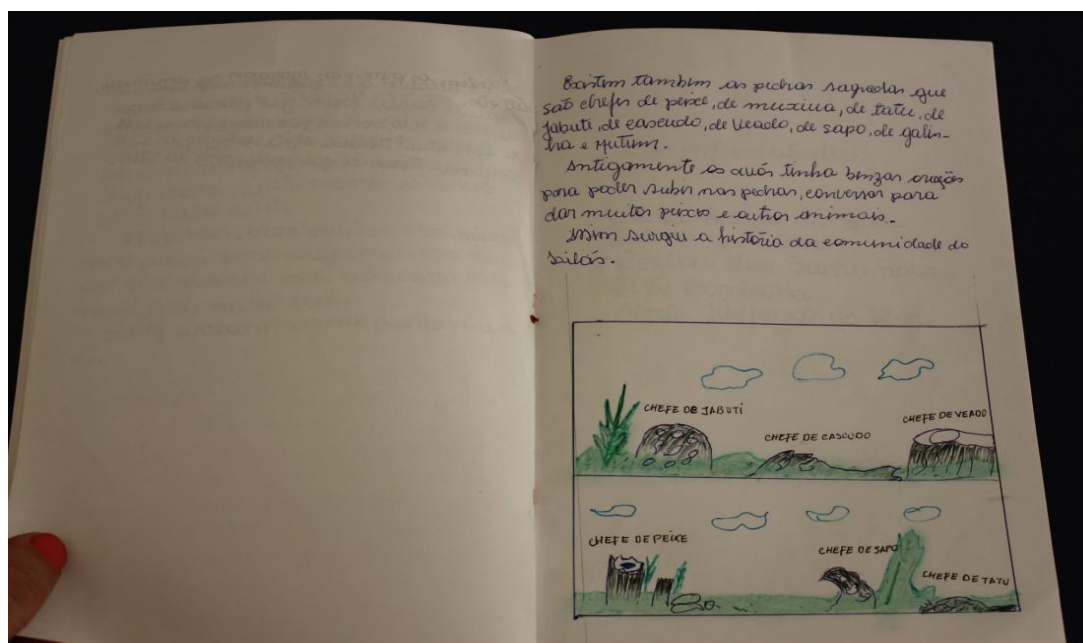 Existem também as pedras sagradas que
são chefes de peixe, de muxiua, de tatu, de
Jabuti, de cascudo, de Veado, de sapo, de galin-
ha e Mutum.
Antigamente os avós tinha benzar oração
para poder subir nas pedras, conversar para
dar muitos peixes e outros animais.
Assim surgiu a história da comunidade do
CHEFE DE JABUTÍ
CHEFE DE CASCUDO
CHEFE DE VEADO
CHEFE DE PEIXE
CHEFE DE SAPO
CHEFE DE TATU